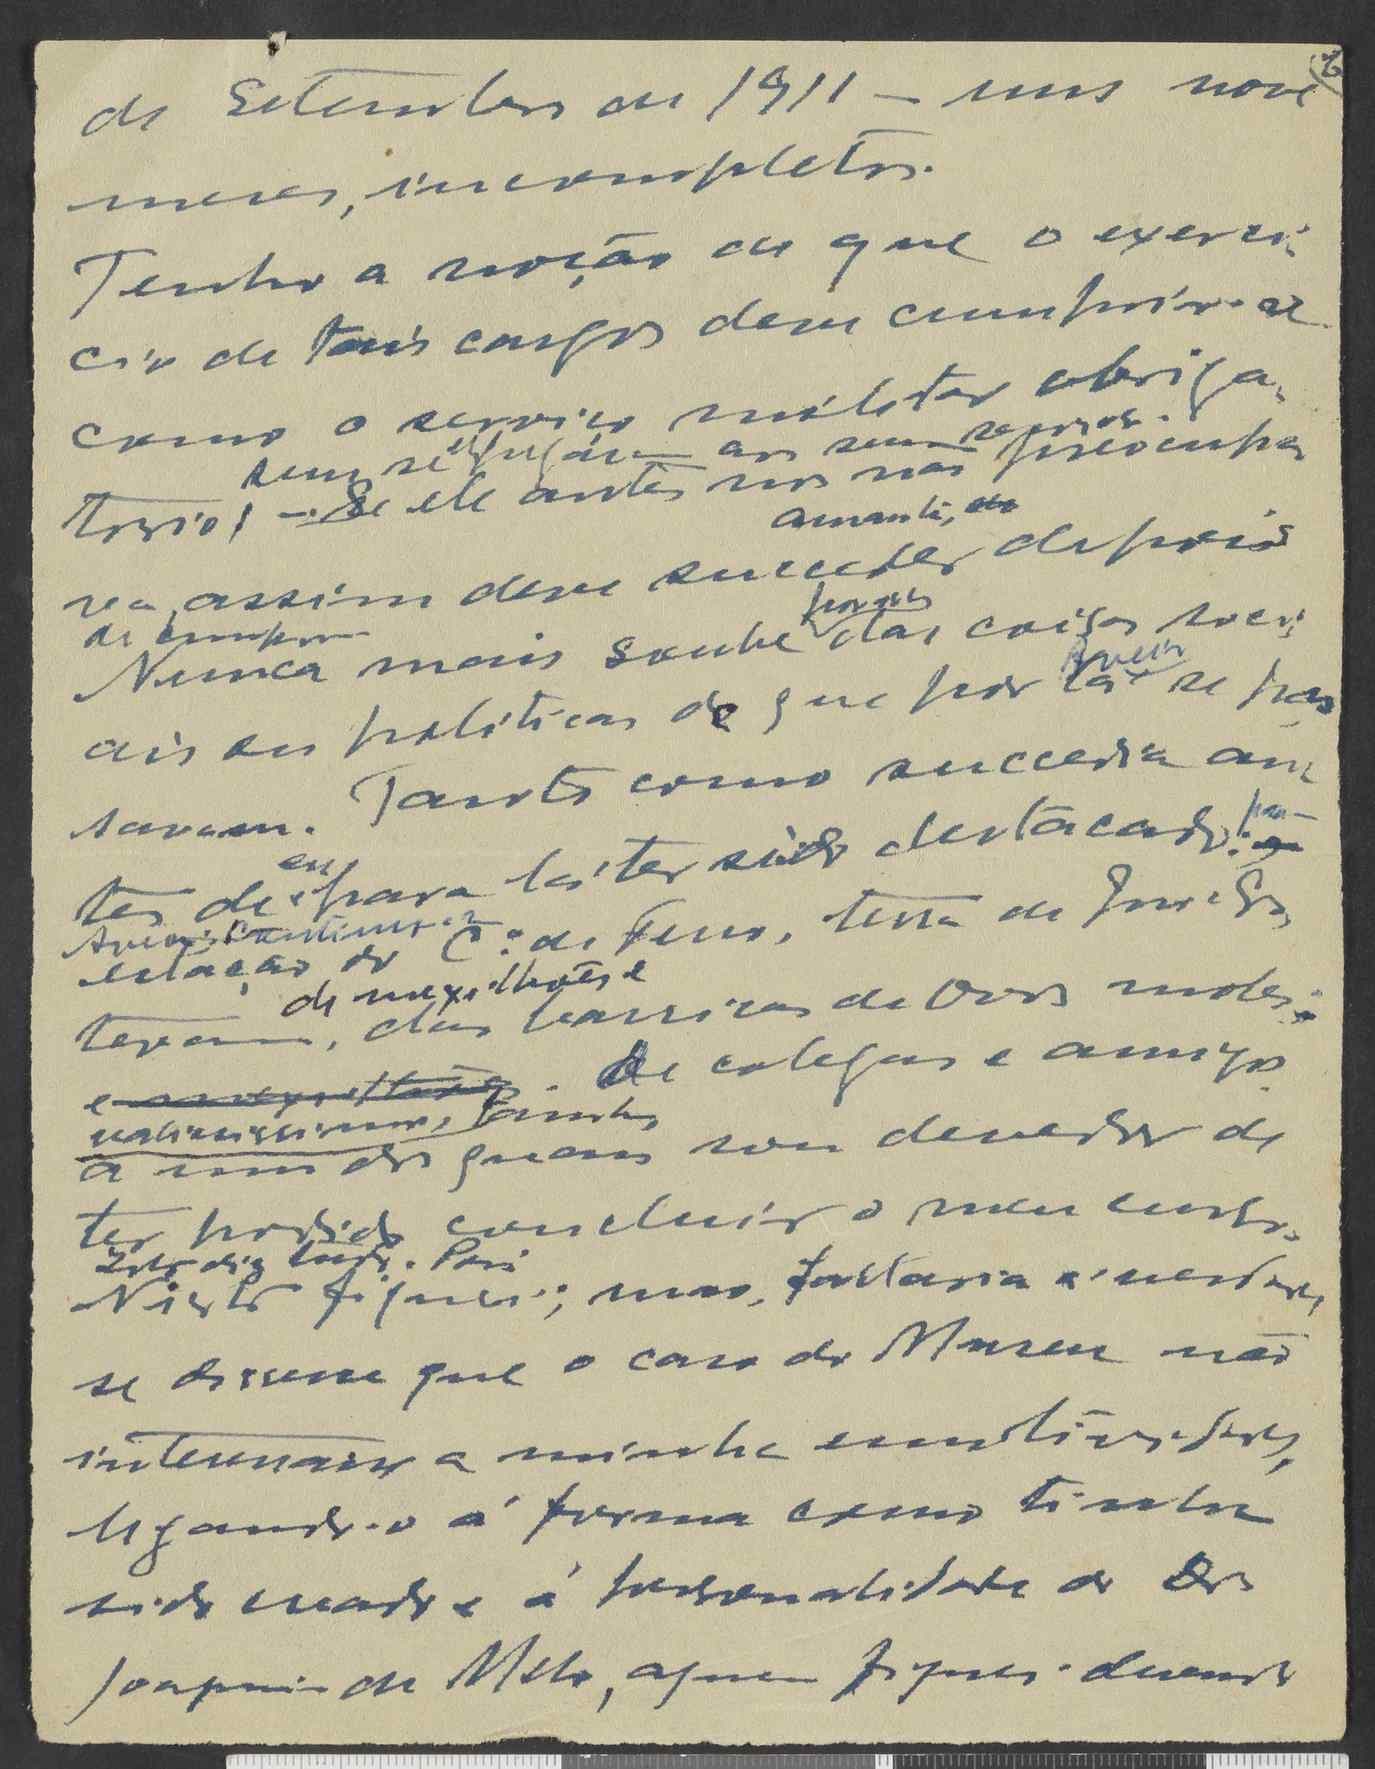 de Setembro de 1911 — uns nove
meses, incompletos.
Tenho a noção de que o exercí-
cio de tais cargos deve cumprir-se
como o serviço militar obriga-
sem se
tório! — Se ele antes nos não preocupa
amanhã,
va, assim deve succeder depois
de cumpri
Nunca mais soube das coisas soci-
Aveiro
ais ou políticas de que por lá se pas
savam. Tanto como succedia an-
tes de eu para lá ter sido destacado:
Aveiro continuava
estação do C.º de Ferro, terra de
de mexilhões e
das barricas de Ovos moles
e mexilhões. De colegas e amigos
a um dos quais sou devedor de
ter podido concluir o meu curso.
Isto diz tudo. Pois
Nisto fiquei; mas, faltaria á verdade,
se dissesse que o caso do Museu não
interessava a minha emotividade,
ligando-o á forma como tinha
sido creado e á personalidade do Dr.
Joaquim de Melo, a quem fiquei devendo